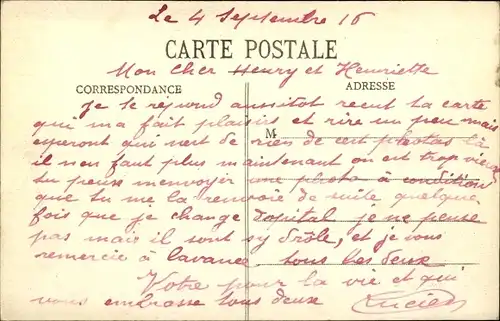 Le 4 Septembre 16
CARTE POSTALE
Mon Cher Henry et Henriette
CORRESPONDANCE
ADRESSE
je te répond aussitot recut ta carte
qui ma fait plaisirs et rire un peu mais
M
esperont qui nest de rien de cest photos là
il nen faut plus maintenant on est trop vieux
tu peuse menvoyer une photo à condition
que tu me la renvoie de suite quelque
fois que je change dopital je ne pense
pas mais il sont sy drôle, et je vous
remercie à lavance tous les deux
Votre pour la vie et qui
vous embrasse tous deux
Lucien